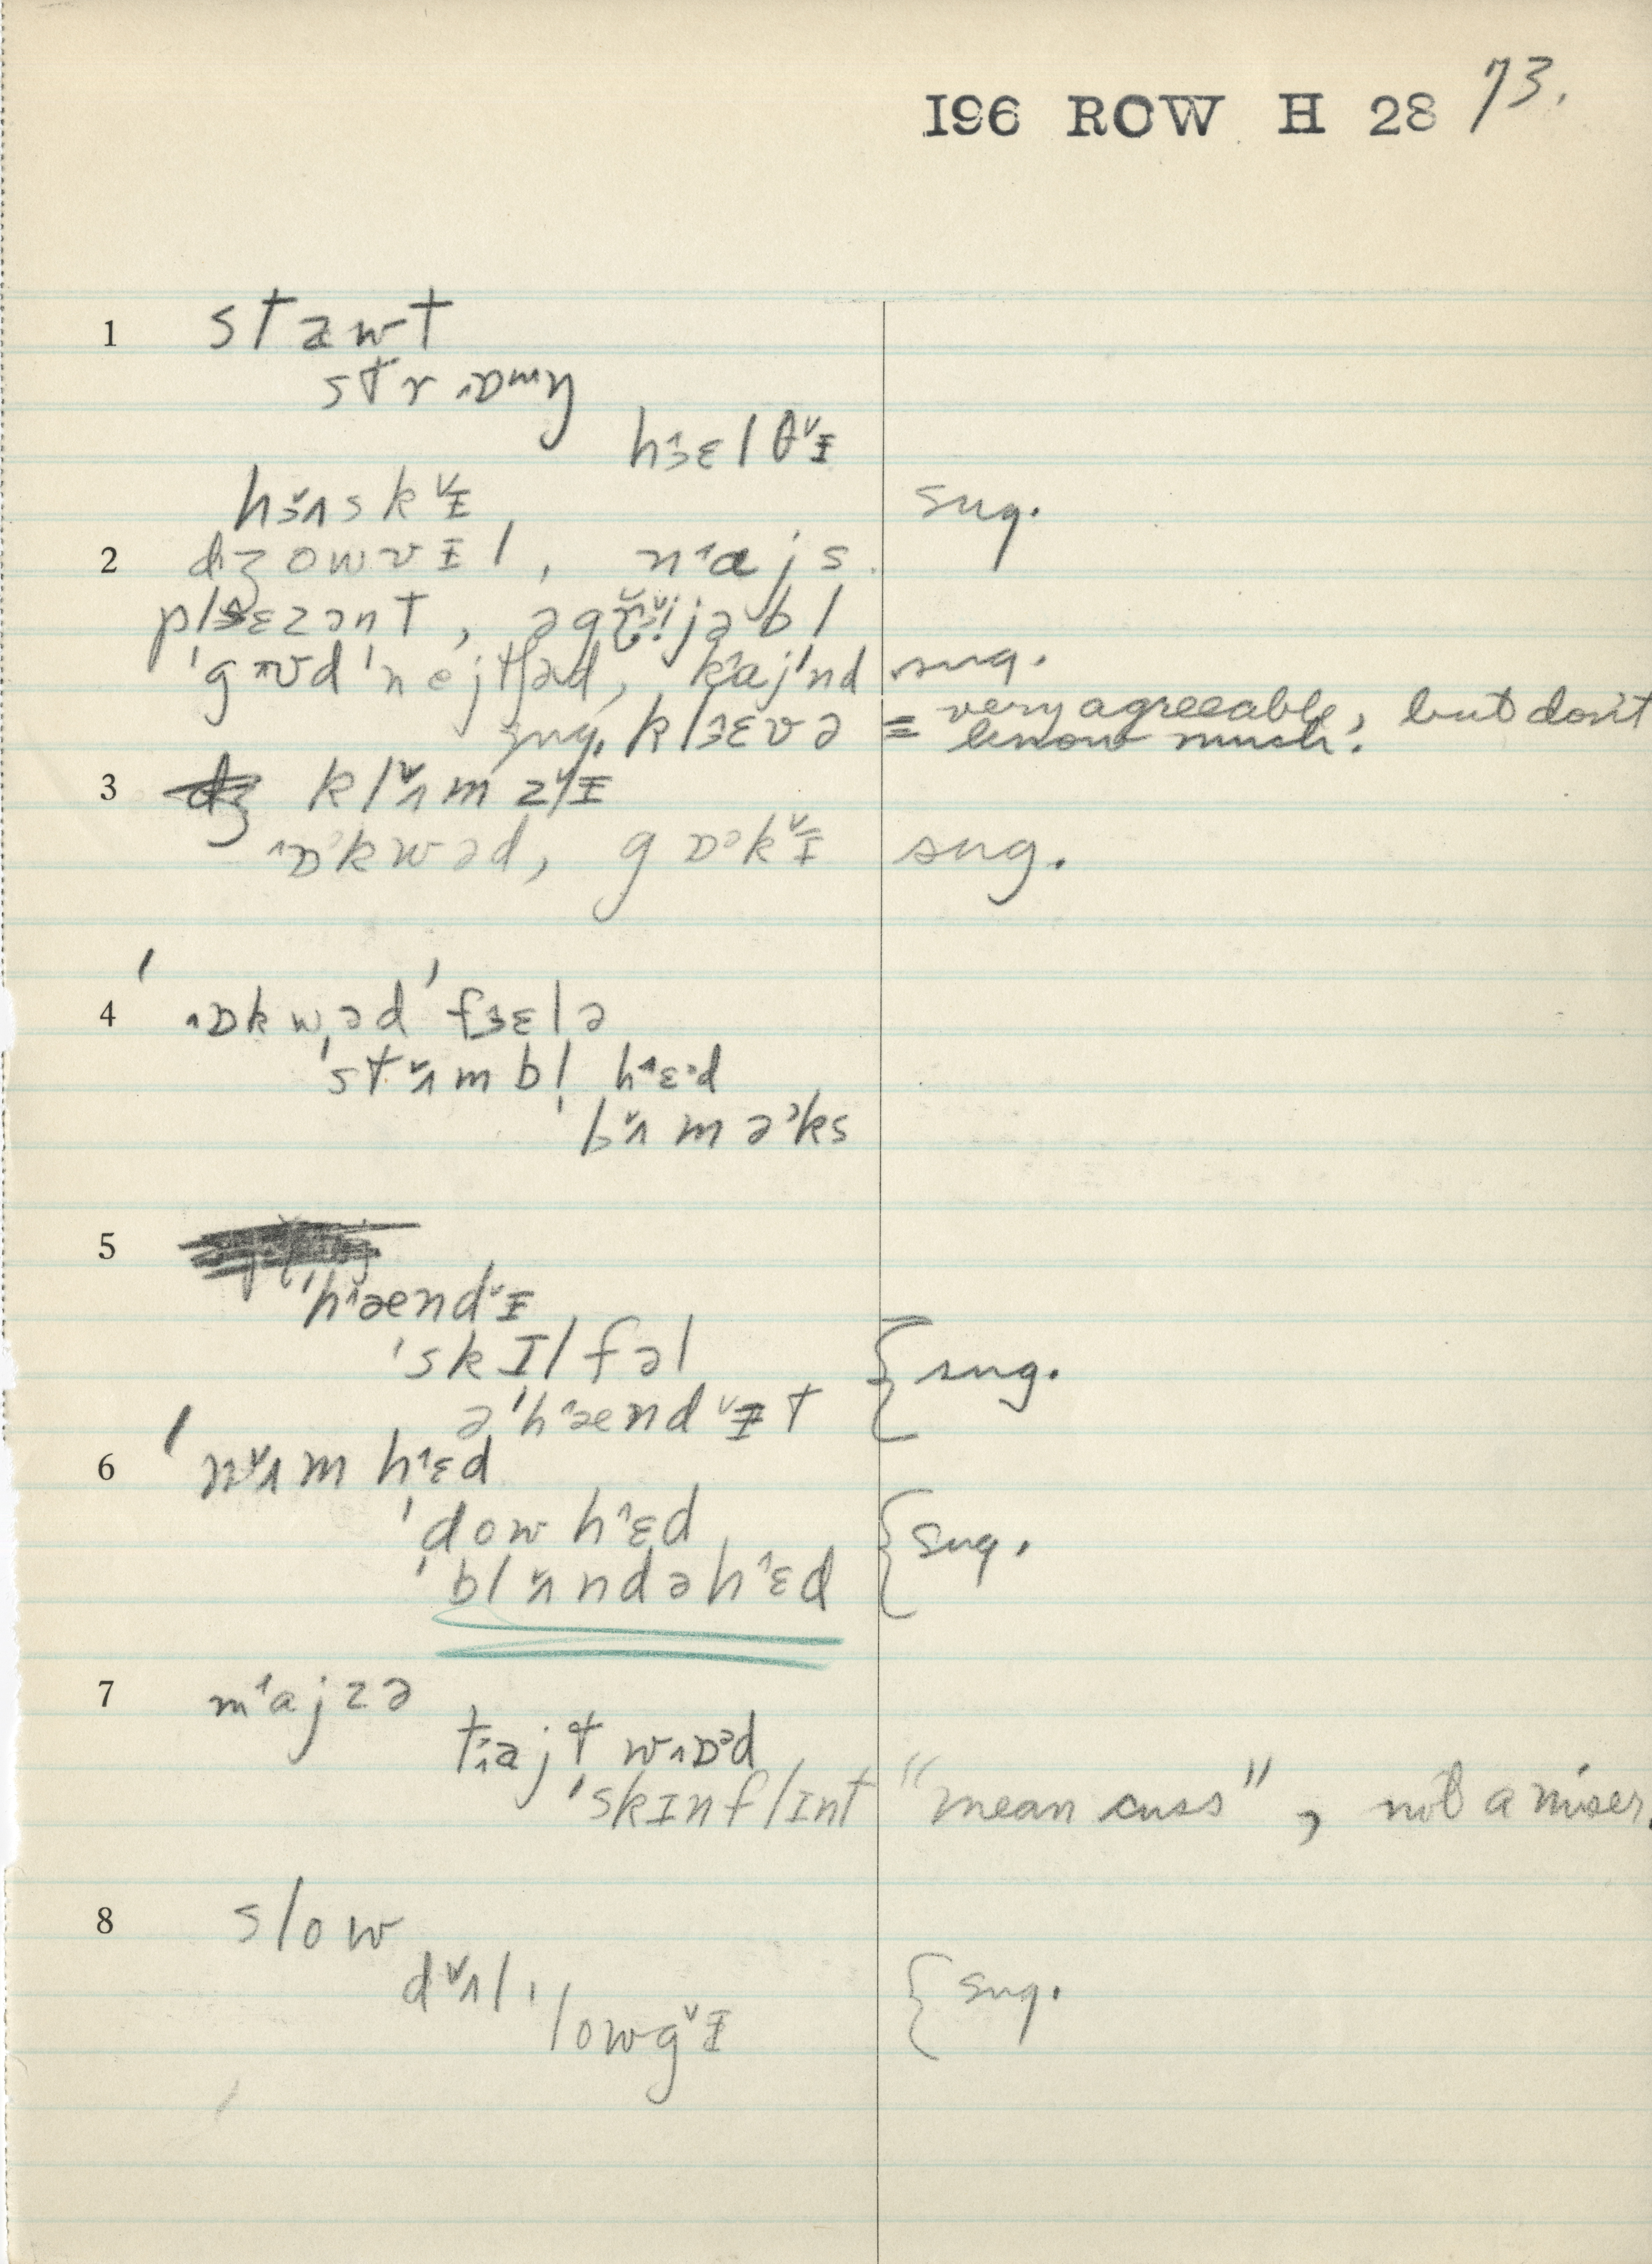 196 ROW H 28 73.
1 stawt
strɒŋ
hɜɛlθɪ
hɜʌskɪ sug.
2 dʒowvɪl, najs.
plɛzənt, 
'gʊd 'nejtʃəd, kajnd sug.
sug. klɜɛvə = very agreeable, but don't
know much.
3 klʌmzɪ
ɒkwəd, gɒəkɪ sug.
4 'ɒkwəd 'fɜɛlə
'stʌmbl̩ hɛəd
'bʌməks
5
'hæendɪ
'skɪlfəl { sug.
ə'hæendɪt
6 'nʌm hɛd
'dow hɛd { sug.
'blʌndəhɛd
7 majzə
tajt wɒəd
'skɪnflɪnt "mean cuss", not a miser.
8 slow
dʌl { sug.
lowgɪ